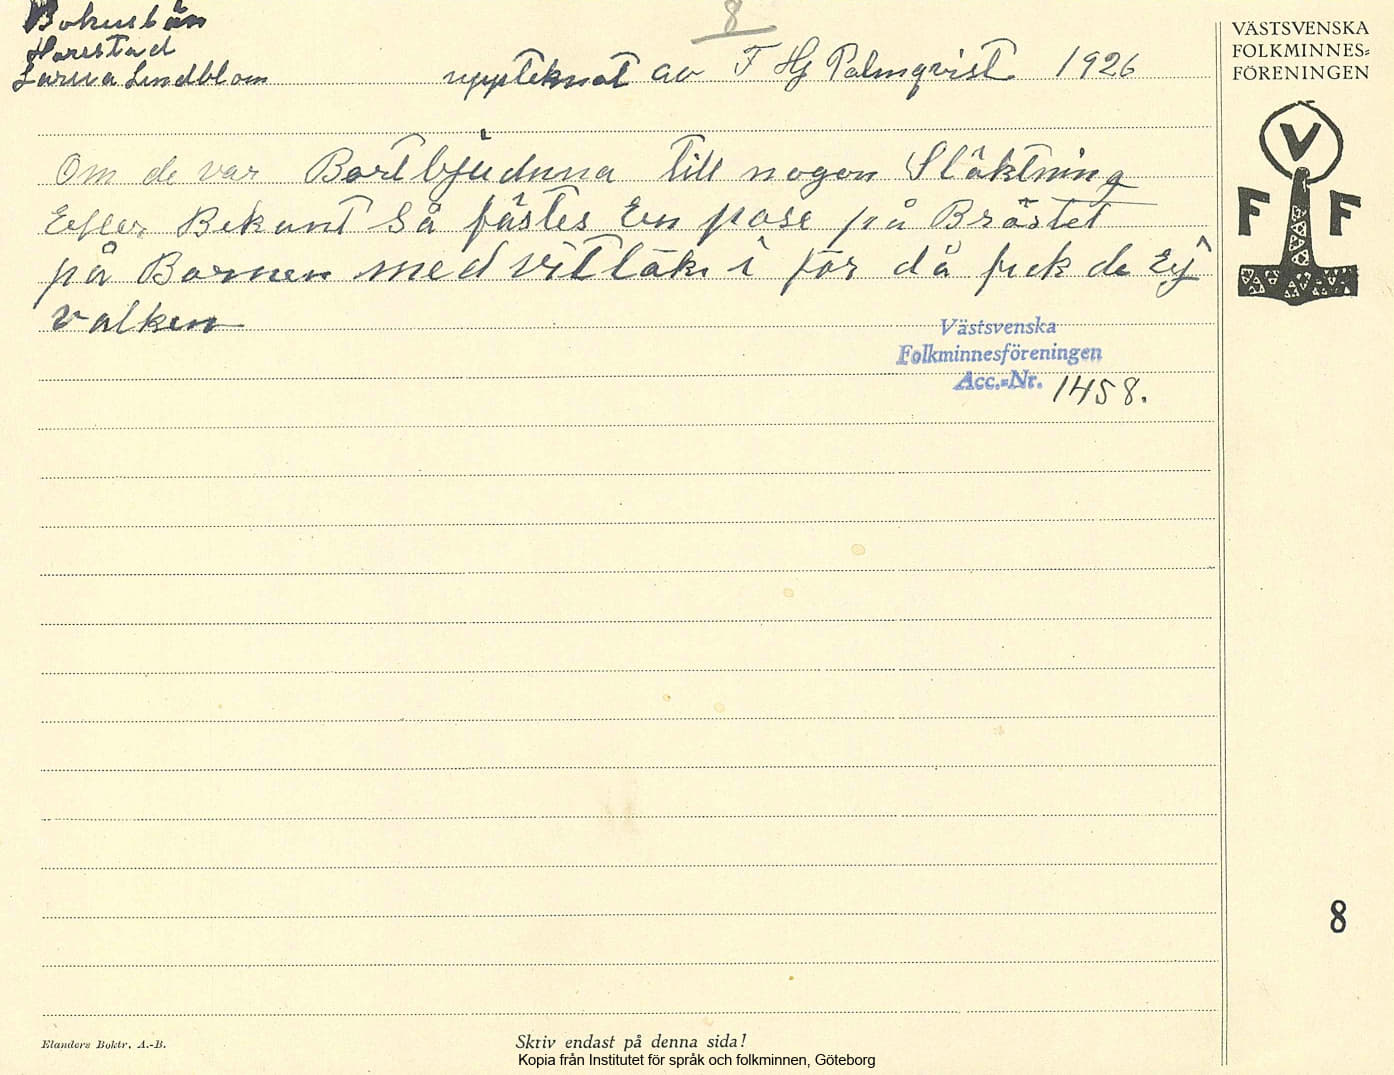 8
Bohuslän
Harestad
Larina Lindblom
uppteknat av F Hj Palmqvist 1926
Om de var Bortbjudnna till nogon Släktning
Eeller Bekant Så fästes Een pase på Bröstet
på Barnen med vitlök i för då fick de Eij
valken
Västsvenska
Folkminnesföreningen
Acc.-Nr. 1458.
VÄSTSVENSKA
FOLKMINNES-
FÖRENINGEN
V
F F
8
Elanders Boktr. A.-B.
Skriv endast på denna sida!
Kopia från Institutet för språk och folkminnen, Göteborg